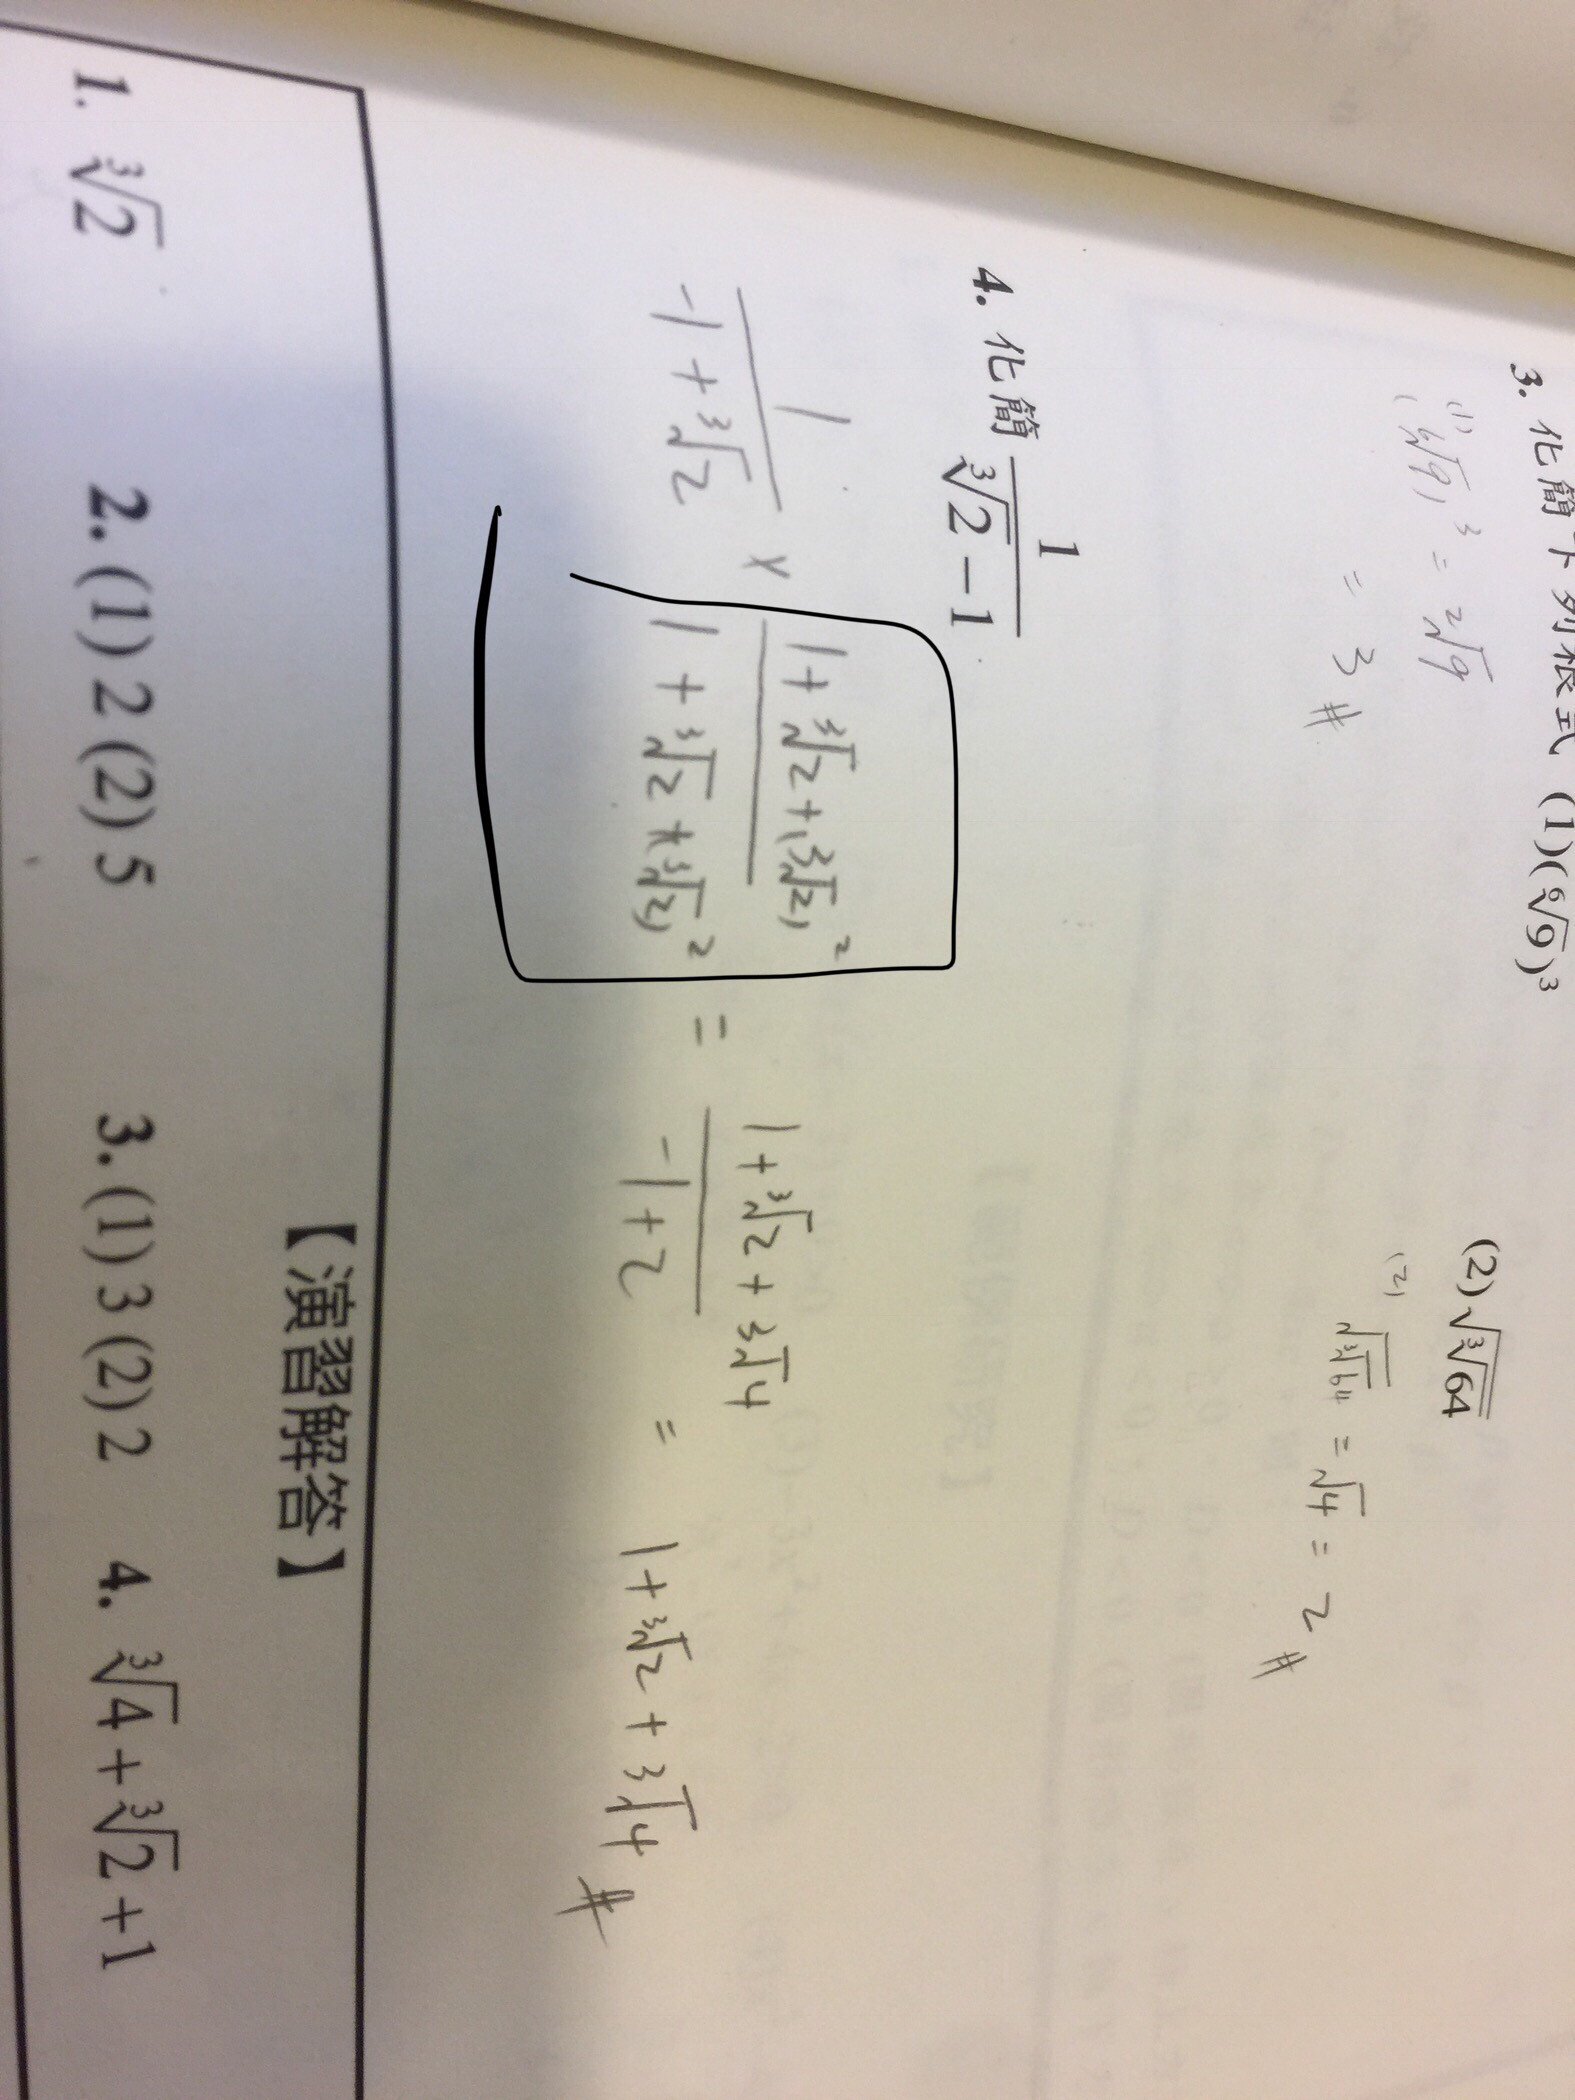 3. 化簡下列根式 (1)(⁶√9)³ (2)√(³√64)
(1) (⁶√9)³ = ²√9
= 3 #
(2) √(³√64) = √4 = 2 #
4. 化簡 1/(³√2 − 1)
1/(-1 + ³√2) × (1 + ³√2 + (³√2)²)/(1 + ³√2 + (³√2)²) = (1 + ³√2 + ³√4)/(-1 + 2) = 1 + ³√2 + ³√4 #
【演習解答】
1. ³√2 2. (1) 2 (2) 5 3. (1) 3 (2) 2 4. ³√4 + ³√2 + 1